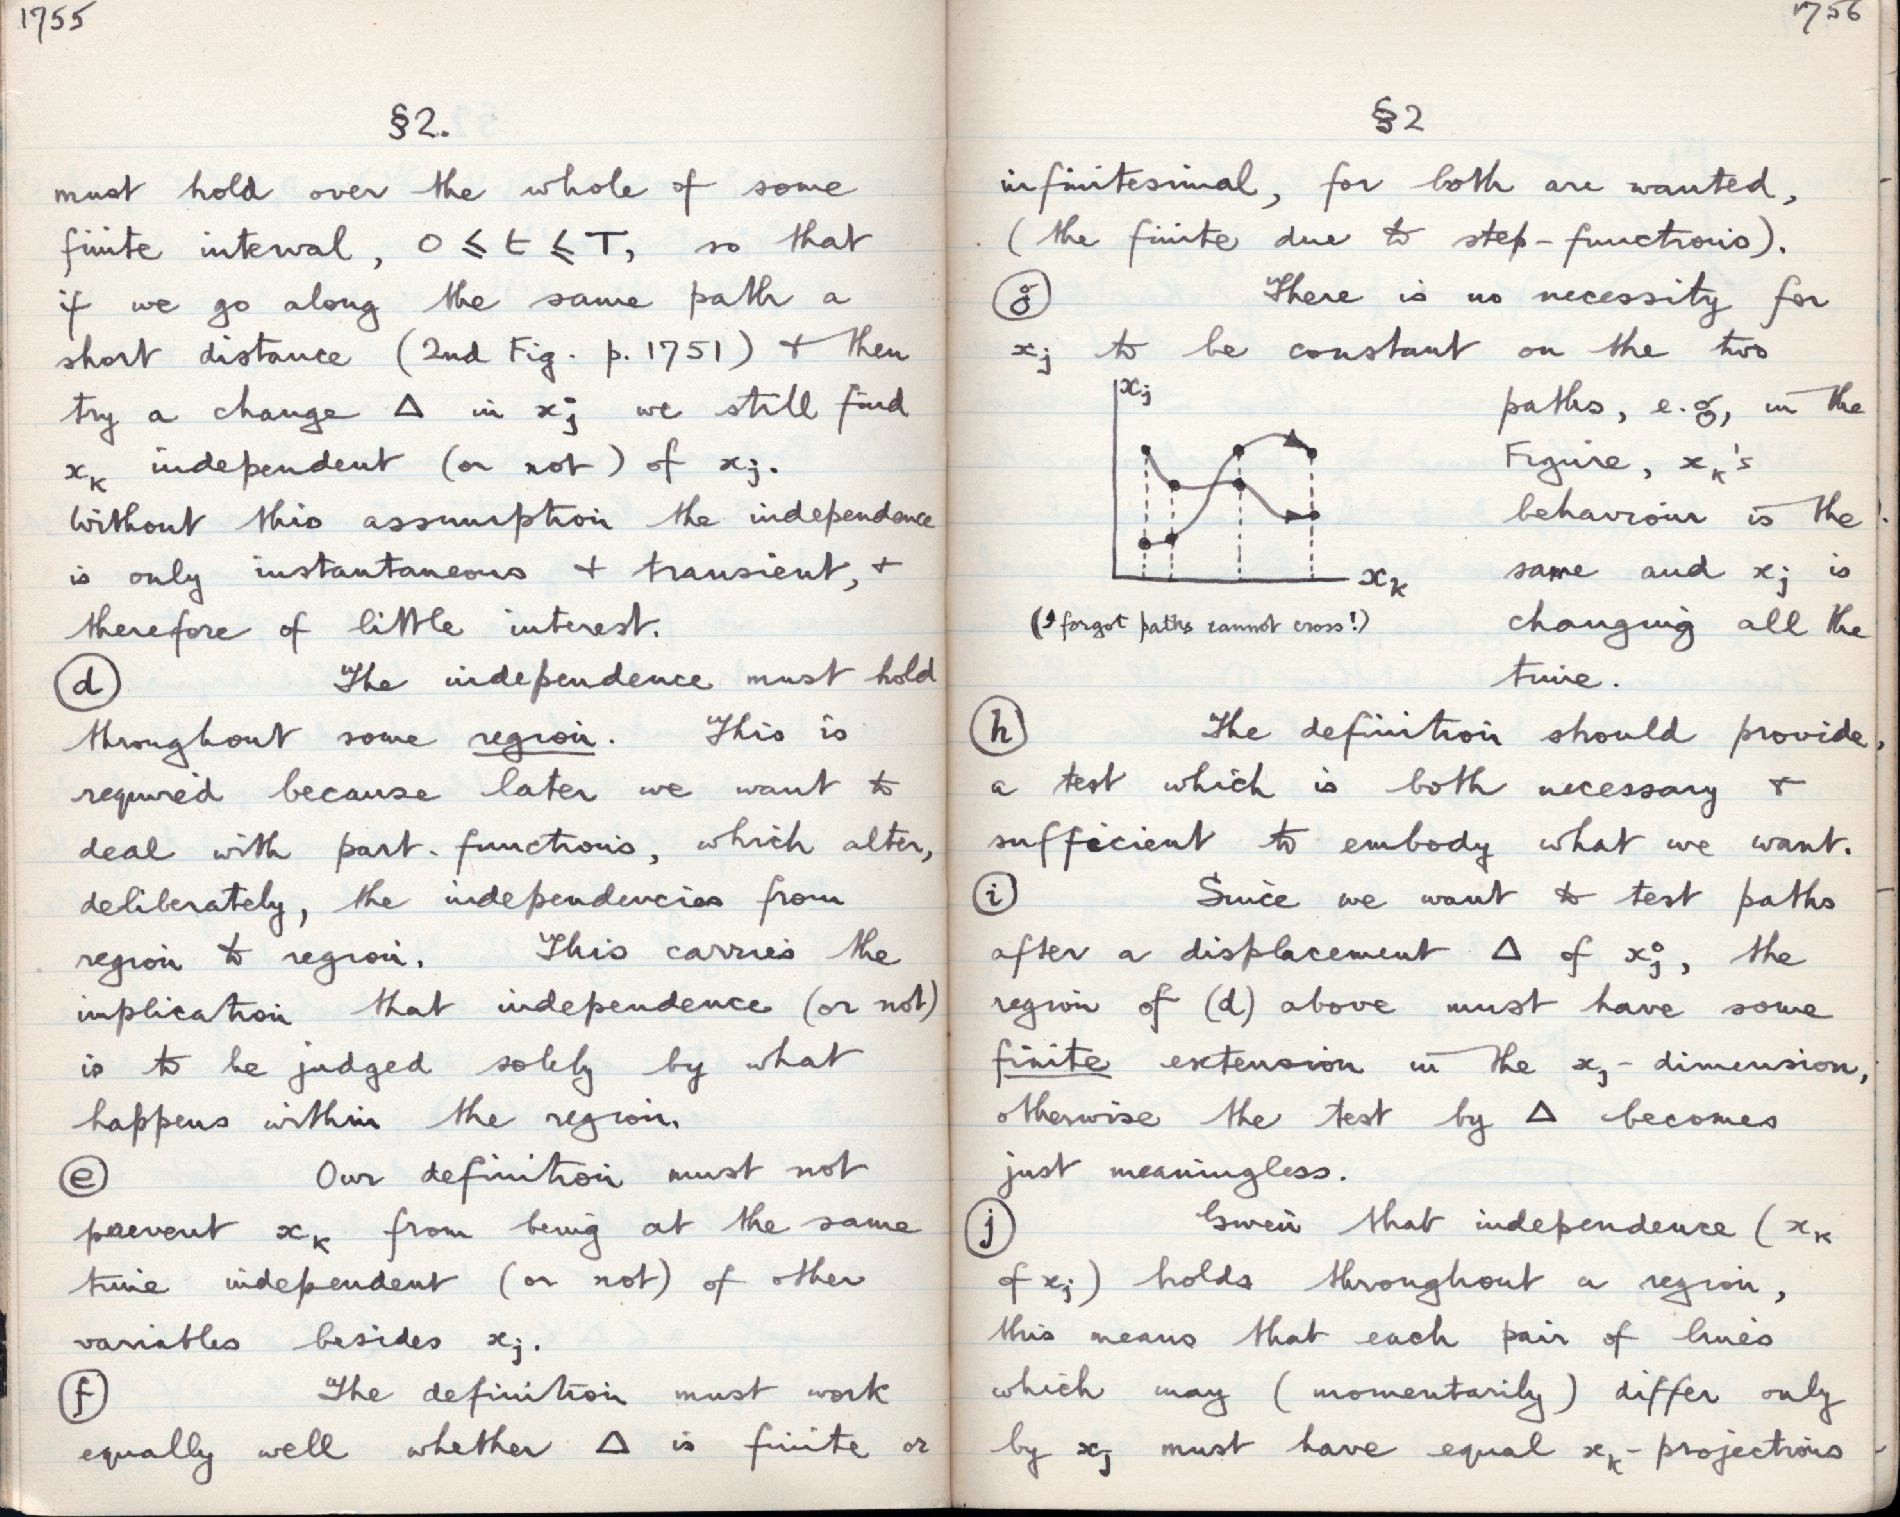 1755
§2.
must hold over the whole of some
finite interval, 0 ⩽ t ⩽ T, so that
if we go along the same path a
short distance (2nd Fig. p. 1751) + then
try a change Δ in xⱼ° we still find
xₖ independent (or not) of xⱼ.
Without this assumption the independence
is only instantaneous + transient, +
therefore of little interest.
(d) The independence must hold
throughout some region. This is
required because later we want to
deal with part-functions, which alter,
deliberately, the independencies from
region to region. This carries the
implication that independence (or not)
is to be judged solely by what
happens within the region.
(e) Our definition must not
prevent xₖ from being at the same
time independent (or not) of other
variables besides xⱼ.
(f) The definition must work
equally well whether Δ is finite or
1756
§2
infinitesimal, for both are wanted,
(the finite due to step-functions).
(g) There is no necessity for
xⱼ to be constant on the two
paths, e.g, in the
Figure, xₖ's
behaviour is the
same and xⱼ is
changing all the
time.
xⱼ
xₖ
(I forgot paths cannot cross!)
(h) The definition should provide,
a test which is both necessary +
sufficient to embody what we want.
(i) Since we want to test paths
after a displacement Δ of xⱼ°, the
region of (d) above must have some
finite extension in the xⱼ-dimension,
otherwise the test by Δ becomes
just meaningless.
(j) Given that independence (xₖ
of xⱼ) holds throughout a region,
this means that each pair of lines
which may (momentarily) differ only
by xⱼ must have equal xₖ-projections